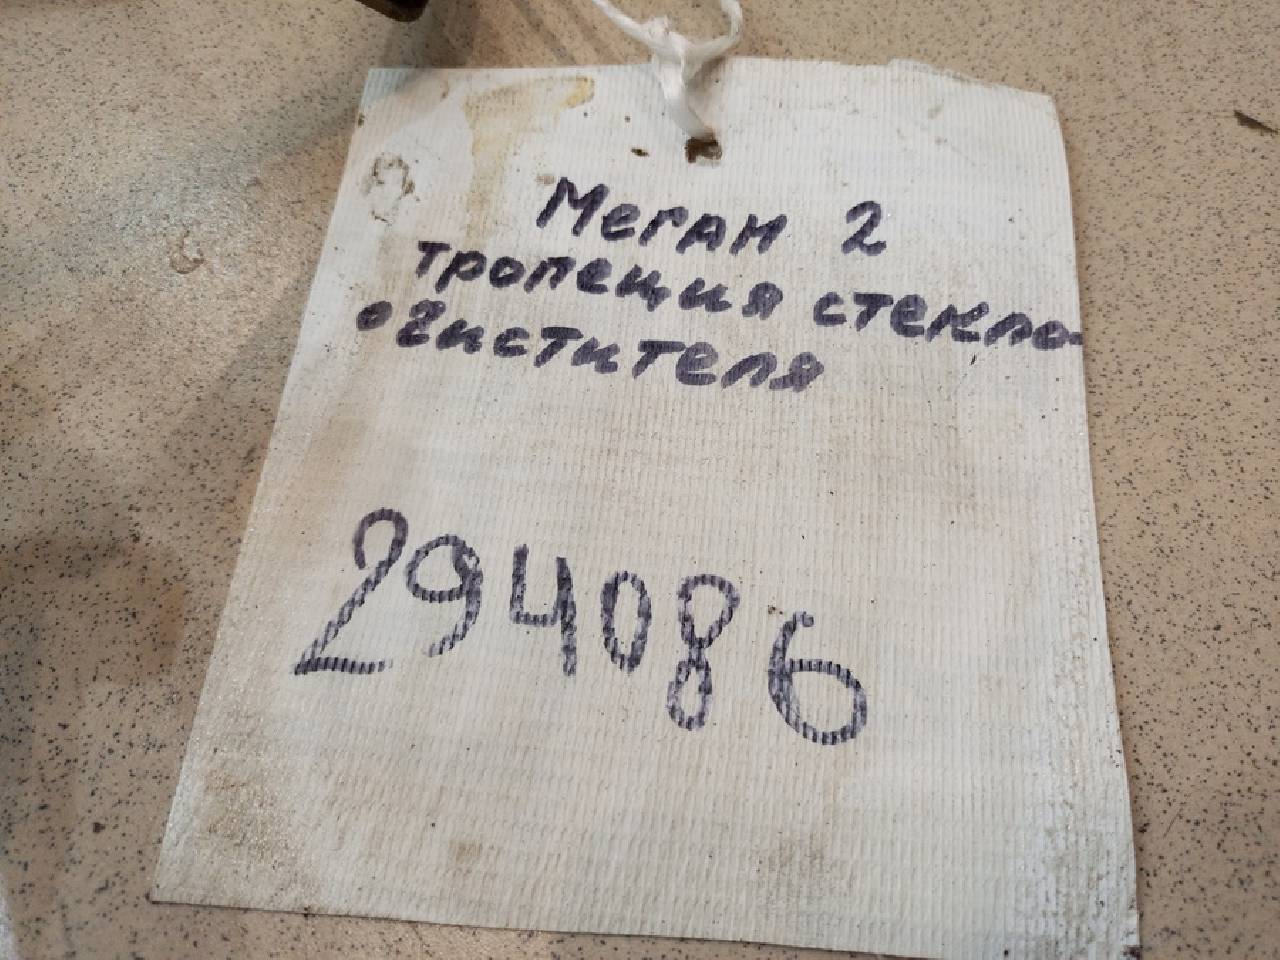 Меган 2
тропеция стекло-
очистителя
294086